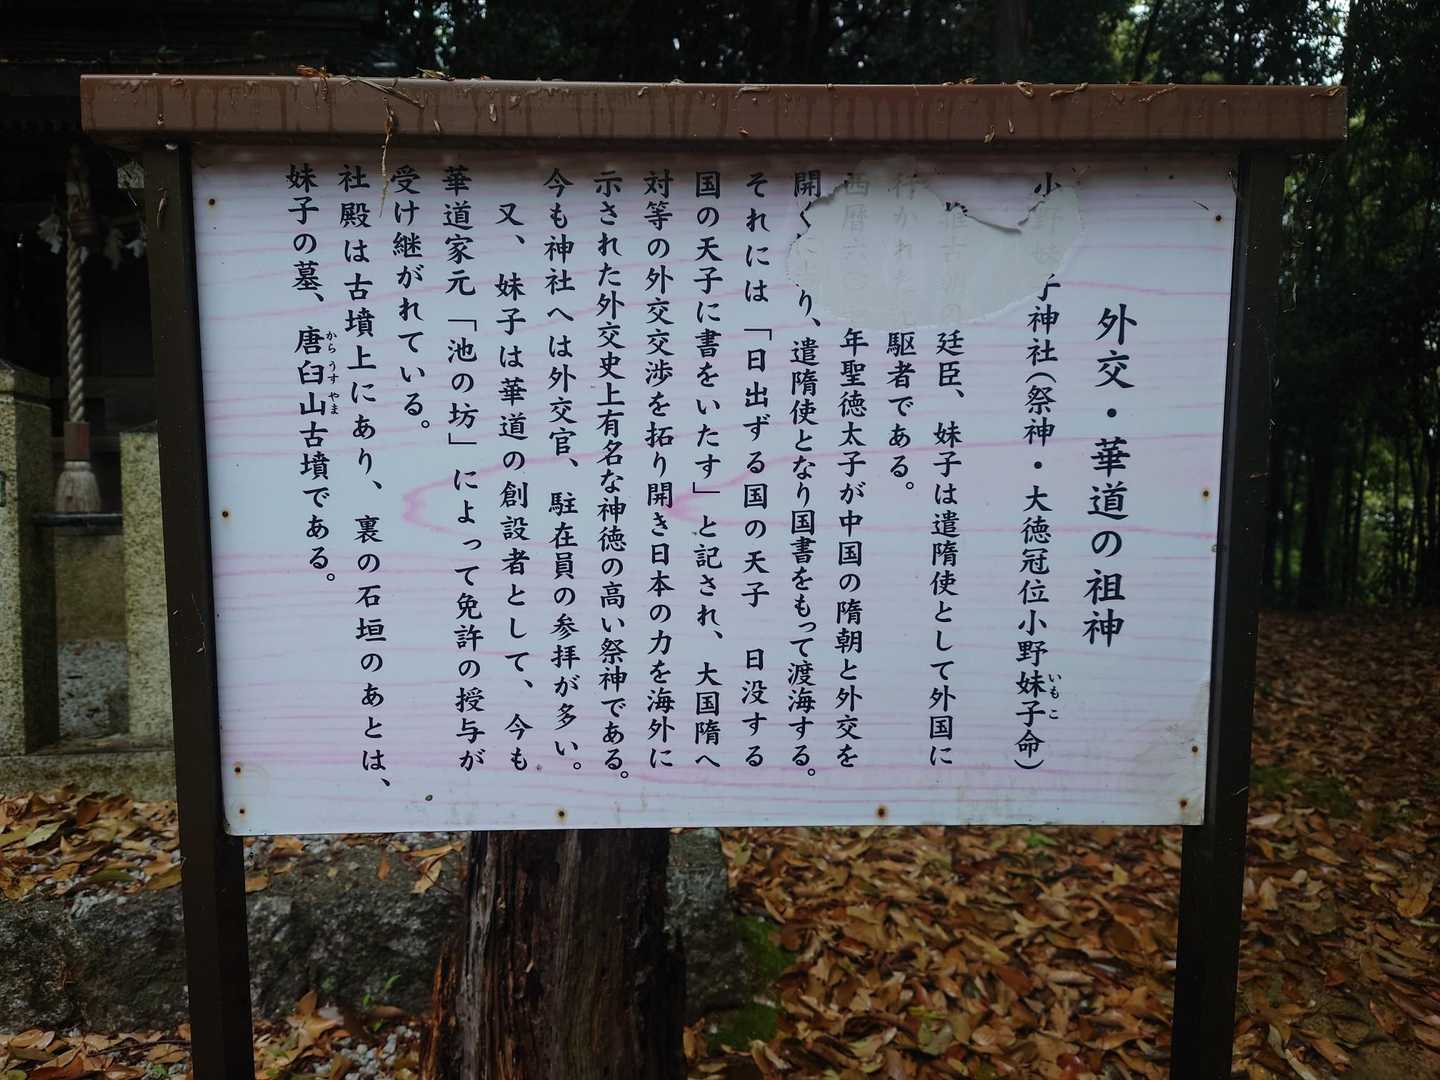 外交・華道の祖神
小野妹子神社(祭神・大徳冠位小野妹子命)
いもこ
推古朝の廷臣、妹子は遣隋使として外国に
行かれた先駆者である。
西暦六〇 年聖徳太子が中国の隋朝と外交を
開く に り、遣隋使となり国書をもって渡海する。
それには「日出ずる国の天子 日没する
国の天子に書をいたす」と記され、大国隋へ
対等の外交交渉を拓り開き日本の力を海外に
示された外交史上有名な神徳の高い祭神である。
今も神社へは外交官、駐在員の参拝が多い。
又、妹子は華道の創設者として、今も
華道家元「池の坊」によって免許の授与が
受け継がれている。
社殿は古墳上にあり、裏の石垣のあとは、
妹子の墓、唐臼山古墳である。
からうすやま